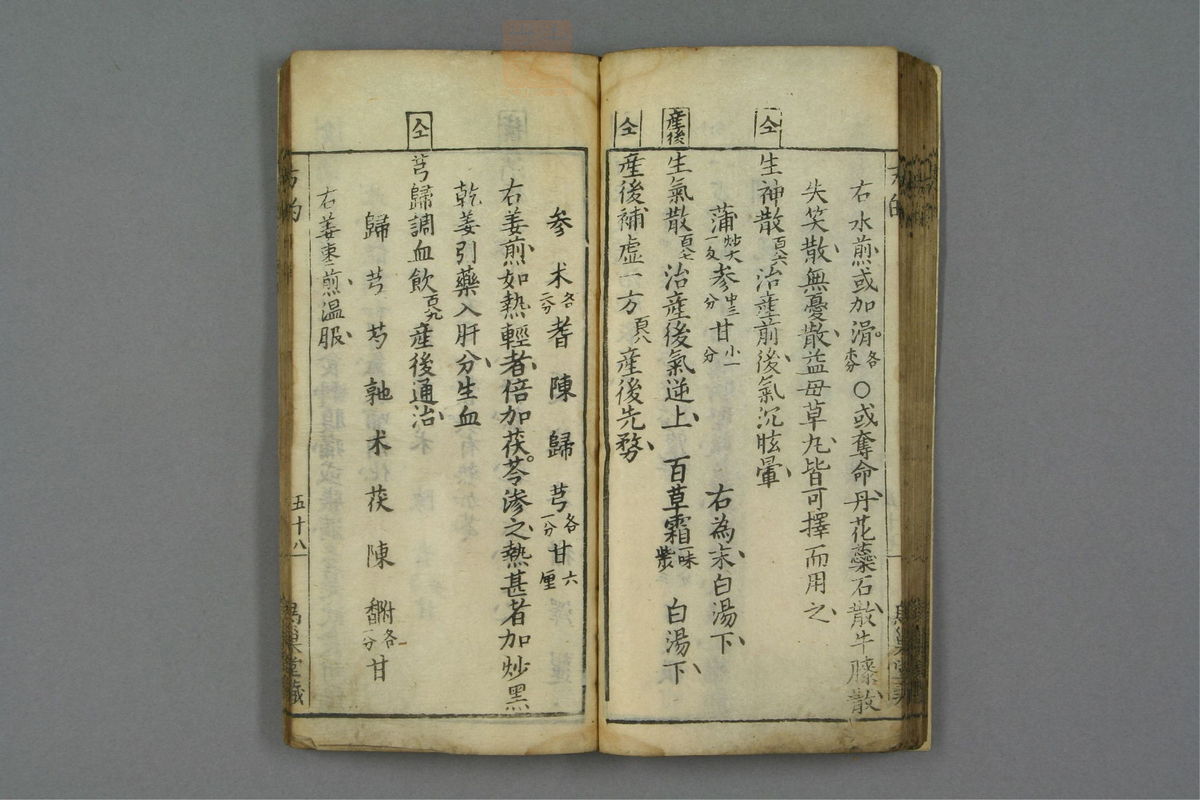 右水煎或加滑各〇或奪命丹花蘂石散牛膝散
失笑散無憂散益母草丸皆可擇而用之
仝
生神散百六治産前後氣沉眩暈
蒲炒大一久参中三分甘小一分 右為末白湯下
産後
生氣散百七治産後氣逆上 百草霜一味 白湯下
仝
産後補虚一方百八産後先務
参术各二分耆陳歸芎各一分甘六厘
右姜煎如熱輕者倍加茯苓滲之熱甚者加炒黒
乾姜引藥入肝分生血
仝
芎歸調血飲百九産後通治
歸芎芍乹术茯陳附各一分甘
右姜棗煎温服
方的
五十八